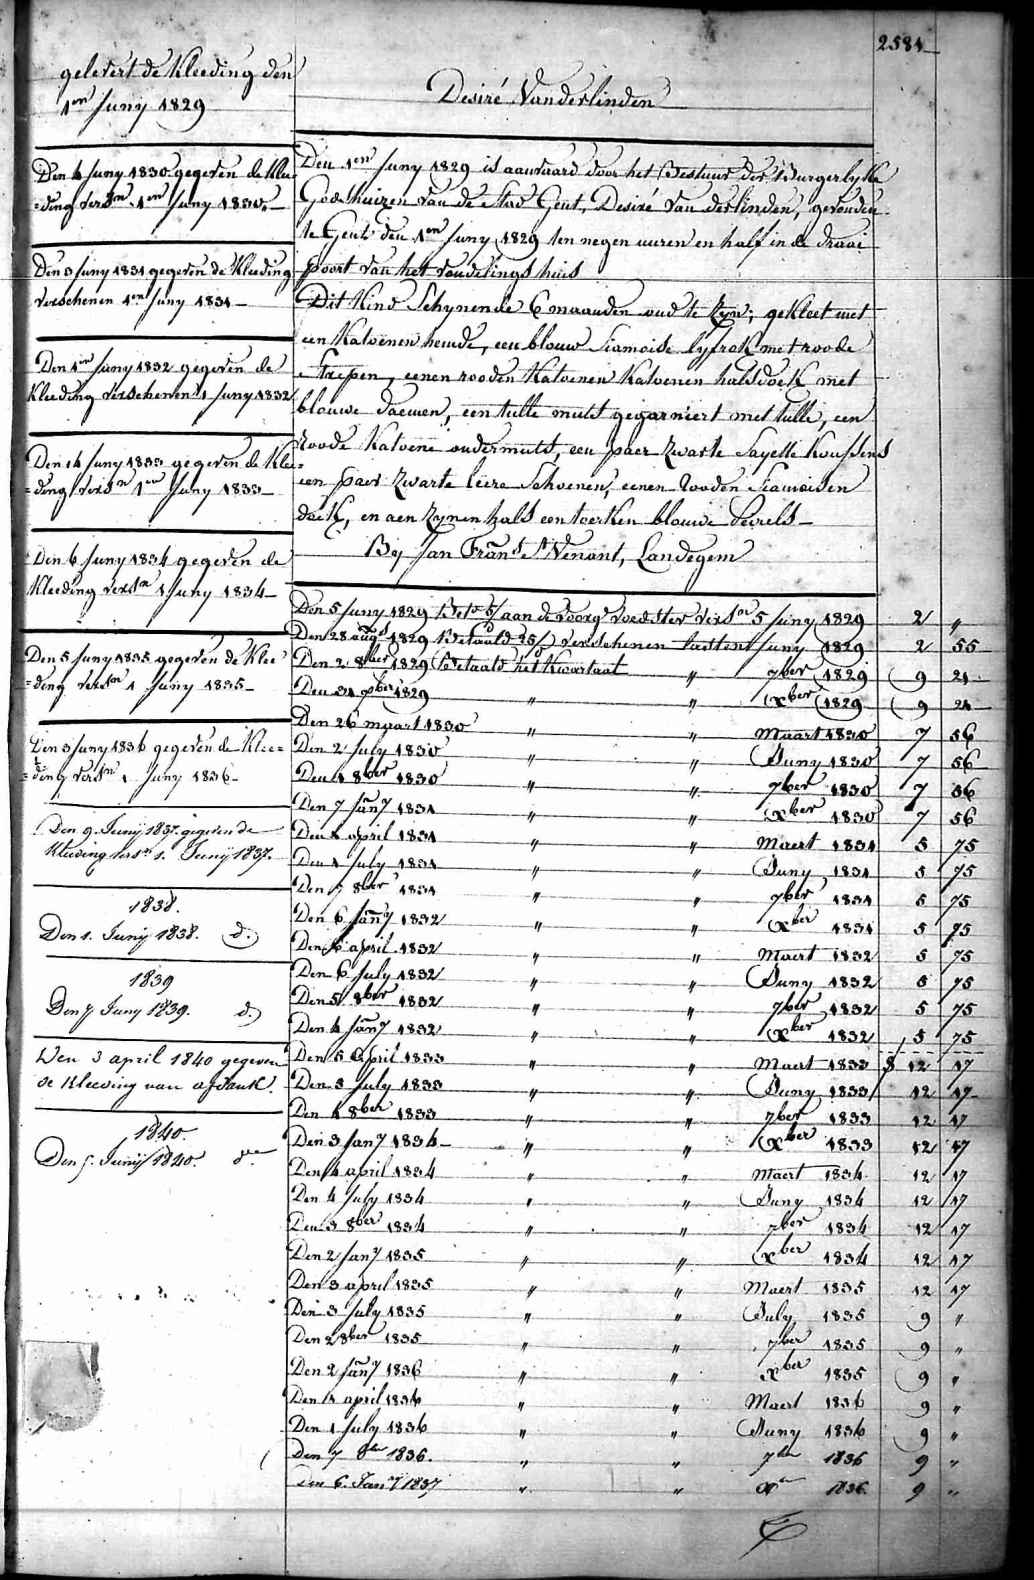 2584
gelevert de kleeding den
1en Juny 1829
Den 4 Juny 1830 gegeven de klee-
=ding versn 1en Juny 1830.
Den 3 Juny 1831 gegeven de kleeding
verschenen 1en Juny 1831
Den 1en Juny 1832 gegeven de
kleeding verschenen 1 Juny 1832
Den 14 Juny 1833 gegeven de klee=
=ding versn 1en Juny 1833
Den 6 Juny 1834 gegeven de
kleeding versn 1 Juny 1834
Den 5 Juny 1835 gegeven de klee-
=ding versn 1 Juny 1835
Den 3 Juny 1836 gegeven de klee=
=ding versn 1 Juny 1836
Den 9. Junij 1837. gegeven de
kleeding versn 1. Junij 1837.
1838.
Den 1. Junij 1838. d.
1839
Den 7 Juny 1839. d.
Den 3 april 1840 gegeven
de kleeding van afdank.
1840.
Den 5. Junij 1840.
Desiré Vanderlinden
Den 1en Juny 1829 is aanvaard door het Bestuur der Burgerlyke
Godshuizen van de stad Gent, Desiré Van der linden, gevonden
te Gent den 1en Juny 1829 ten negen uuren en half in de draai
poort van het vondelings huis
Dit kind schynende 6 maanden oud te zyn; gekleet met
een katoenen hemde, een blouw siamoise lyfrok met roode
streepen, eenen rooden katoenen katoenen halsdoek met
blouwe daemen, een tulle muts gegarniert met tulle, een
roode katoene ondermuts, een paer zwarte sayette koussens
een paer zwarte leere schoenen, eenen rooden siamoisen
doek, en aen zynen hals een teerken blouwe peerels
By Jan Frans St Venant, Landegem
Den 5 Juny 1829 aan de voorg voedster versn 5 Juny 1829 2 "
Den 28 augt 1829 Betaald versschenen lasten Juny 1829 2 55
Den 2 8ber 1829 Betaald het kwartaal " 7ber 1829 9 21
Den 31 xber 1829 " " Xber 1829 9 21
Den 26 maart 1830 " " Maart 1830 7 56
Den 2 July 1830 " " Juny 1830 7 56
Den 1 8ber 1830 " " 7ber 1830 7 56
Den 7 Jany 1831 " " Xber 1830 7 56
Den 8 april 1831 " " Maert 1831 5 75
Den 1 July 1831 " " Juny 1831 5 75
Den 7 8ber 1831 " " 7ber 1831 5 75
Den 6 Jany 1832 " " Xber 1831 5 75
Den 6 april 1832 " " Maert 1832 5 75
Den 6 July 1832 " " Juny 1832 5 75
Den 5 8ber 1832 " " 7ber 1832 5 75
Den 4 Jany 1832 " " Xber 1832 5 75
Den 5 April 1833 " " Maert 1833 12 17
Den 5 July 1833 " " Juny 1833 12 17
Den 4 8ber 1833 " " 7ber 1833 12 17
Den 3 Jany 1834 " " Xber 1833 12 17
Den 4 april 1834 " " Maert 1834 12 17
Den 4 July 1834 " " Juny 1834 12 17
Den 3 8ber 1834 " " 7ber 1834 12 17
Den 2 Jany 1835 " " Xber 1834 12 17
Den 3 april 1835 " " Maert 1835 12 17
Den 3 July 1835 " " July 1835 9 "
Den 2 8ber 1835 " " 7ber 1835 9 "
Den 2 Jany 1836 " " Xber 1835 9 "
Den 1 april 1836 " " Maert 1836 9 "
Den 1 July 1836 " " Juny 1836 9 "
Den 7 8er 1836. " " 7ber 1836 9 "
Den 6. Jany 1837 " " Xer 1836. 9 "